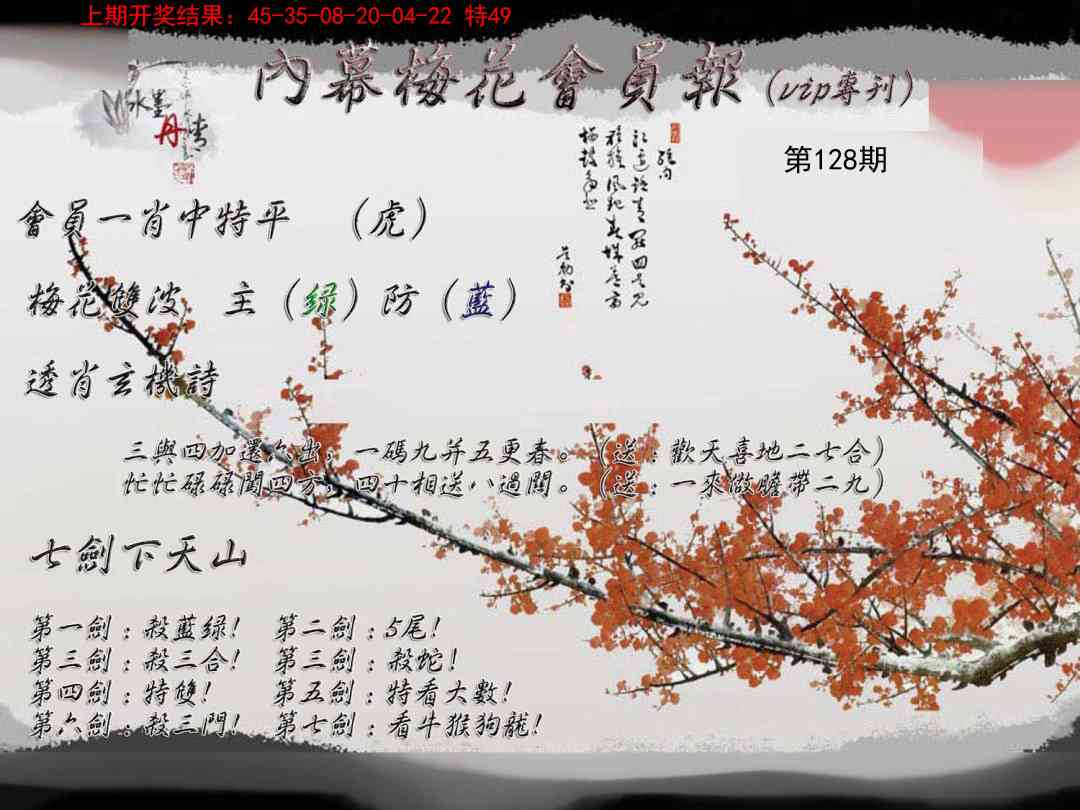 上期开奖结果：45-35-08-20-04-22 特49
內幕梅花會員報（vip專刊）
水墨
丹情
第128期
會員一肖中特平 （虎）
梅花雙波 主（绿）防（藍）
透肖玄機詩
三與四加還六出，一碼九并五更春。（送：歡天喜地二七合）
忙忙碌碌闖四方，四十相送八過關。（送：一來做瞻帶二九）
七劍下天山
第一劍：殺藍绿！ 第二劍：5尾！
第三劍：殺三合！ 第三劍：殺蛇！
第四劍：特雙！ 第五劍：特看大數！
第六劍：殺三門！ 第七劍：看牛猴狗龍！